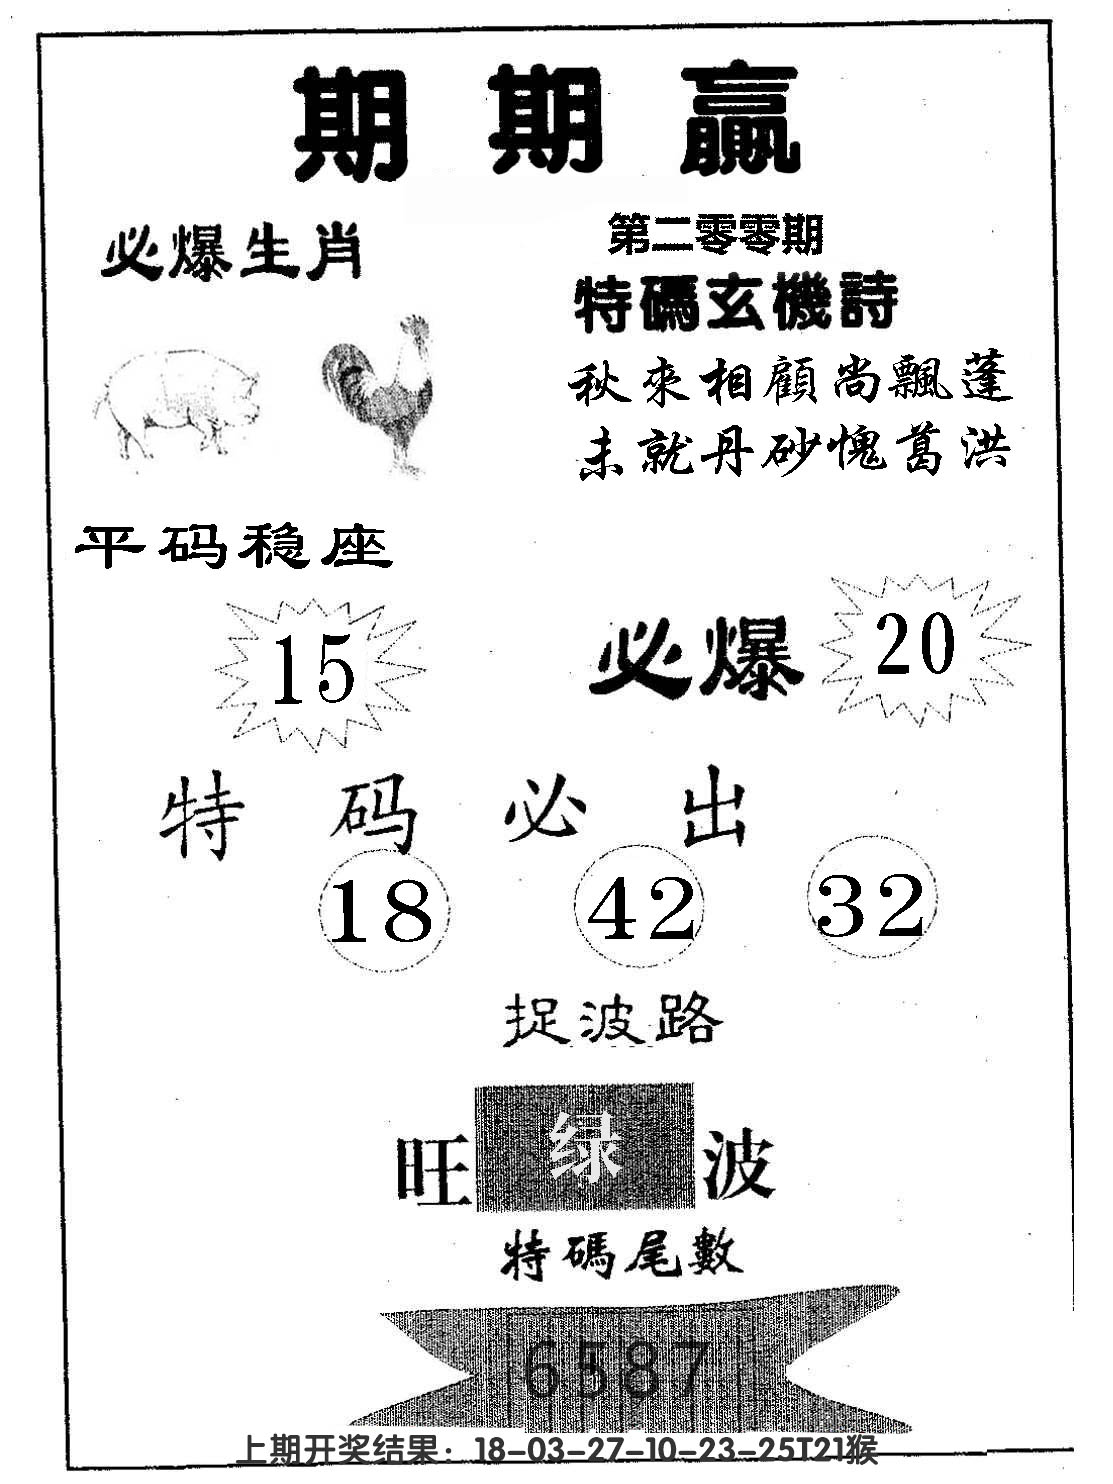 期期赢
必爆生肖
第二零零期
特碼玄機詩
秋來相顧尚飄蓬
未就丹砂愧葛洪
平码稳座
15
必爆 20
特码必出
18 42 32
捉波路
旺 绿 波
特碼尾數
6587
上期开奖结果：18-03-27-10-23-25T21猴